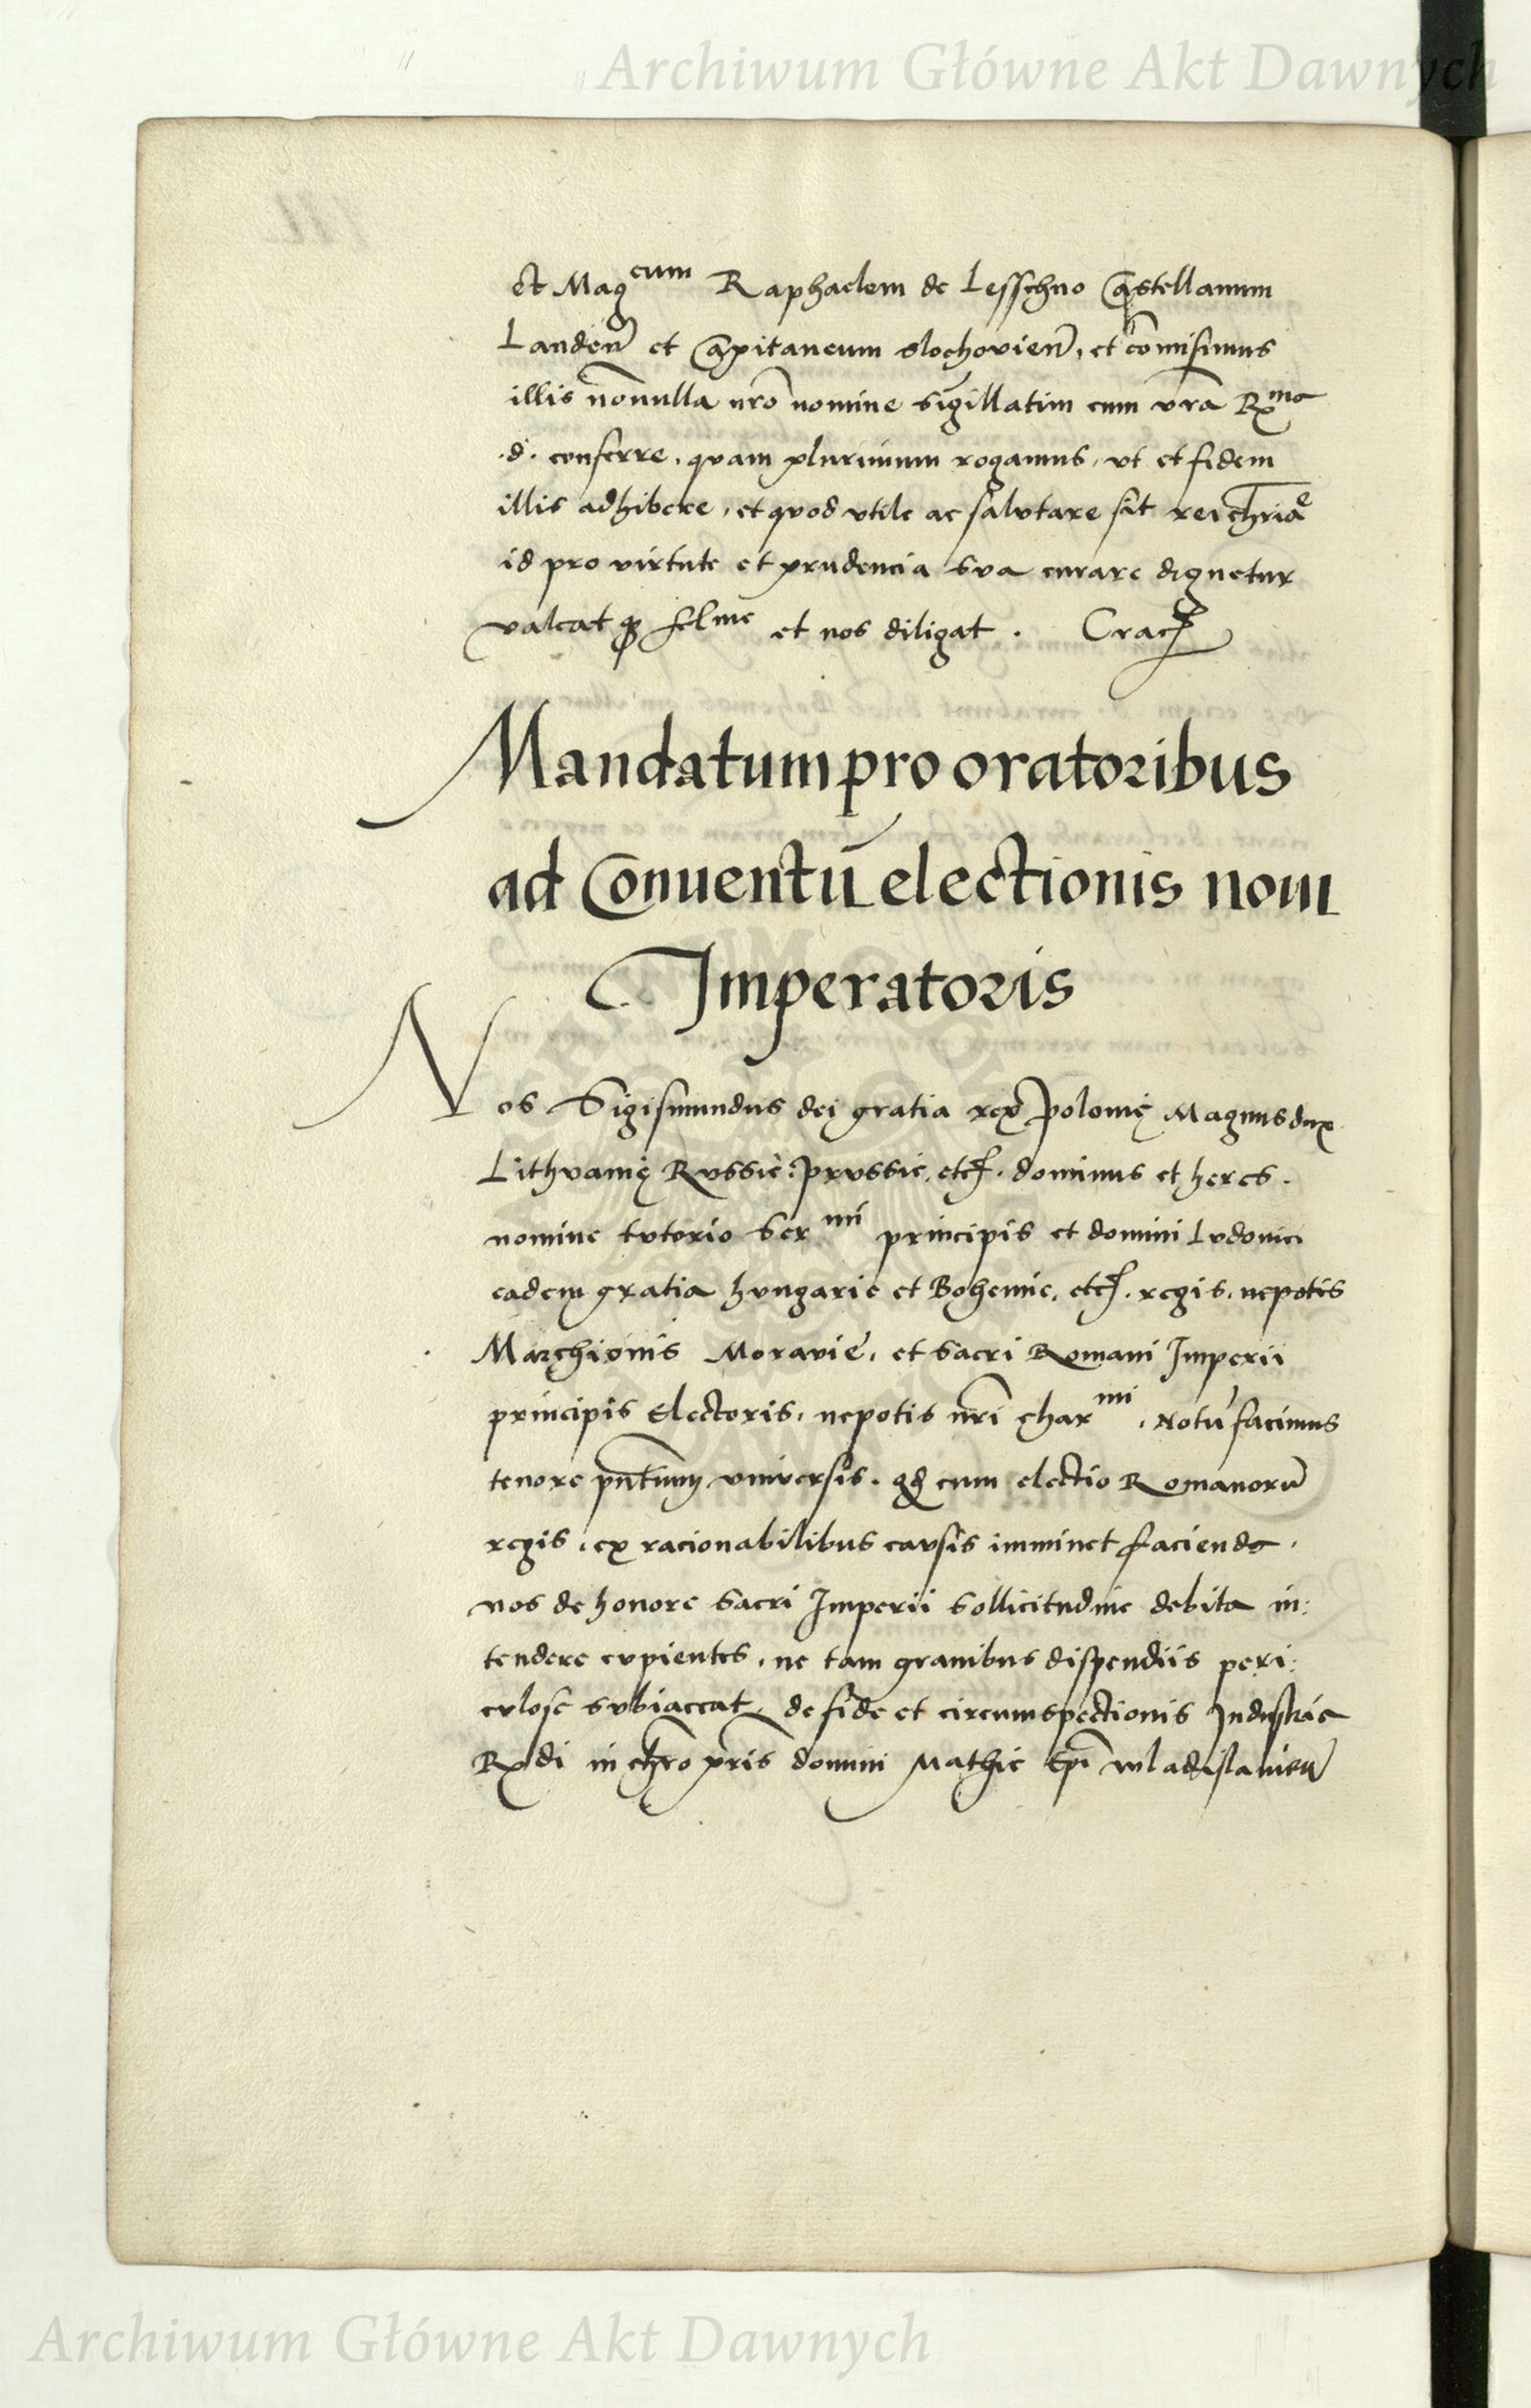 Archiwum Główne Akt Dawnych
et Mag^cum Raphaelem de Lesschno Castellanum
Landen̄ et Capitaneum slochovien̄, et cōmisimus
illis nōnulla nr̄o nomine sigillatim cum vr̄a R^ma
.d. conferre, quam plurimum rogamus, vt et fidem
illis adhibere, et quod vtile ac salutare sit rei chr̄iae
id pro virtute et prudencia sua curare dignetur
valeat felme et nos diligat. Crac
Mandatum pro oratoribus
ad Conuentū electionis noui
Imperatoris
Nos Sigismundus dei gratia rex polonię Magnus dux
Lithuanię Russie, prussie, etc. dominus et heres.
nomine tutorio Ser^mi principis et domini Ludouici
eadem gratia hungarie et Bohemie, etc. regis, nepotis
Marchionis Moravie, et sacri Romani Imperii
principis Electoris, nepotis nr̄i char^mi, Notū facimus
tenore pn̄tium vniversis. qd cum electio Romanorū
regis, ex racionabilibus causis imminet faciende,
nos de honore sacri Imperii sollicitudine debita in:
tendere cupientes, ne tam grauibus dispendiis peri:
culose subiaceat, de fide et circumspectionis Industrie
Rdi in chr̄o pr̄is domini Mathie Ep̄i wladislauien̄
Archiwum Główne Akt Dawnych